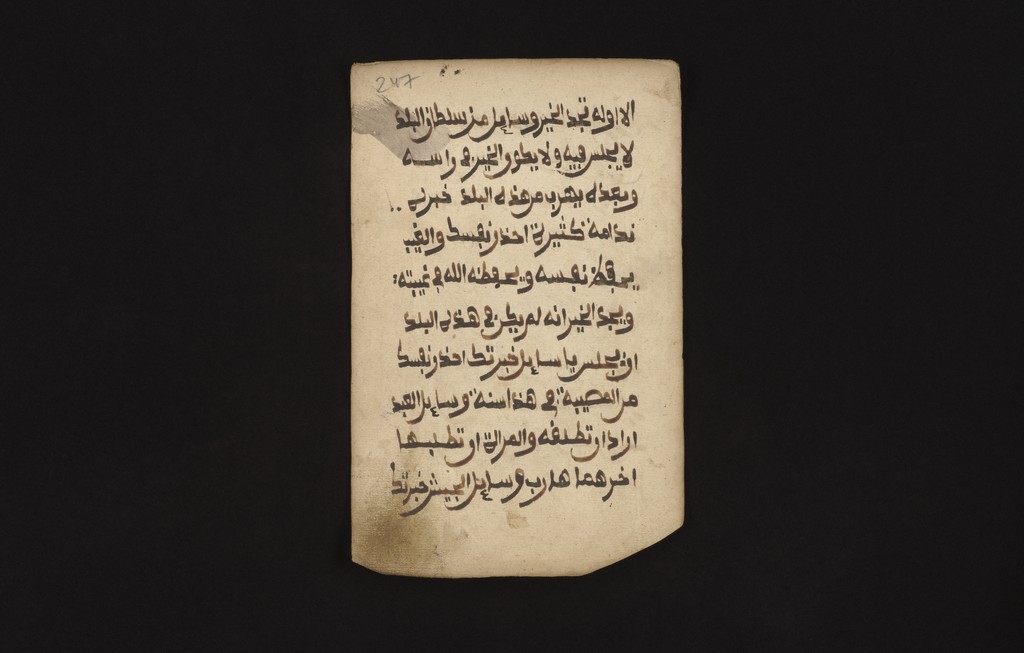 247
الا اوله تجد الخير وسايل من سلطان البلد
لا يجلس فيه ولا يطور الخير في راسه
وبعده يهرب من هذه البلد خبرني
ندامة كثيرة احذر نفسك والغيب
يحفظ نفسه ويحفظه الله في غيبته
ويجد الخير انه لم يكن في هذه البلد
ان يجلس يا سايل خبرتك احذر نفسك
من المصيبة في هذا سنة وسايل العبد
اراد ان تطلقه والمراة ان تطلبها
اخرهما هارب وسايل الجيش خبرتك